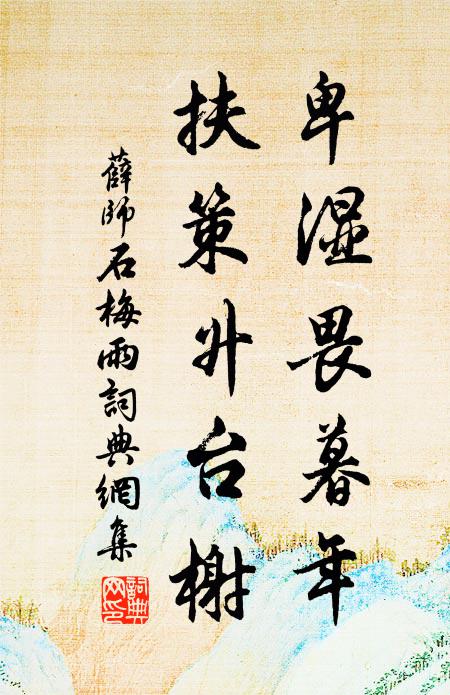 卑湿畏暮年
扶策升台榭
薛师石梅雨詞典網集
詞典网印